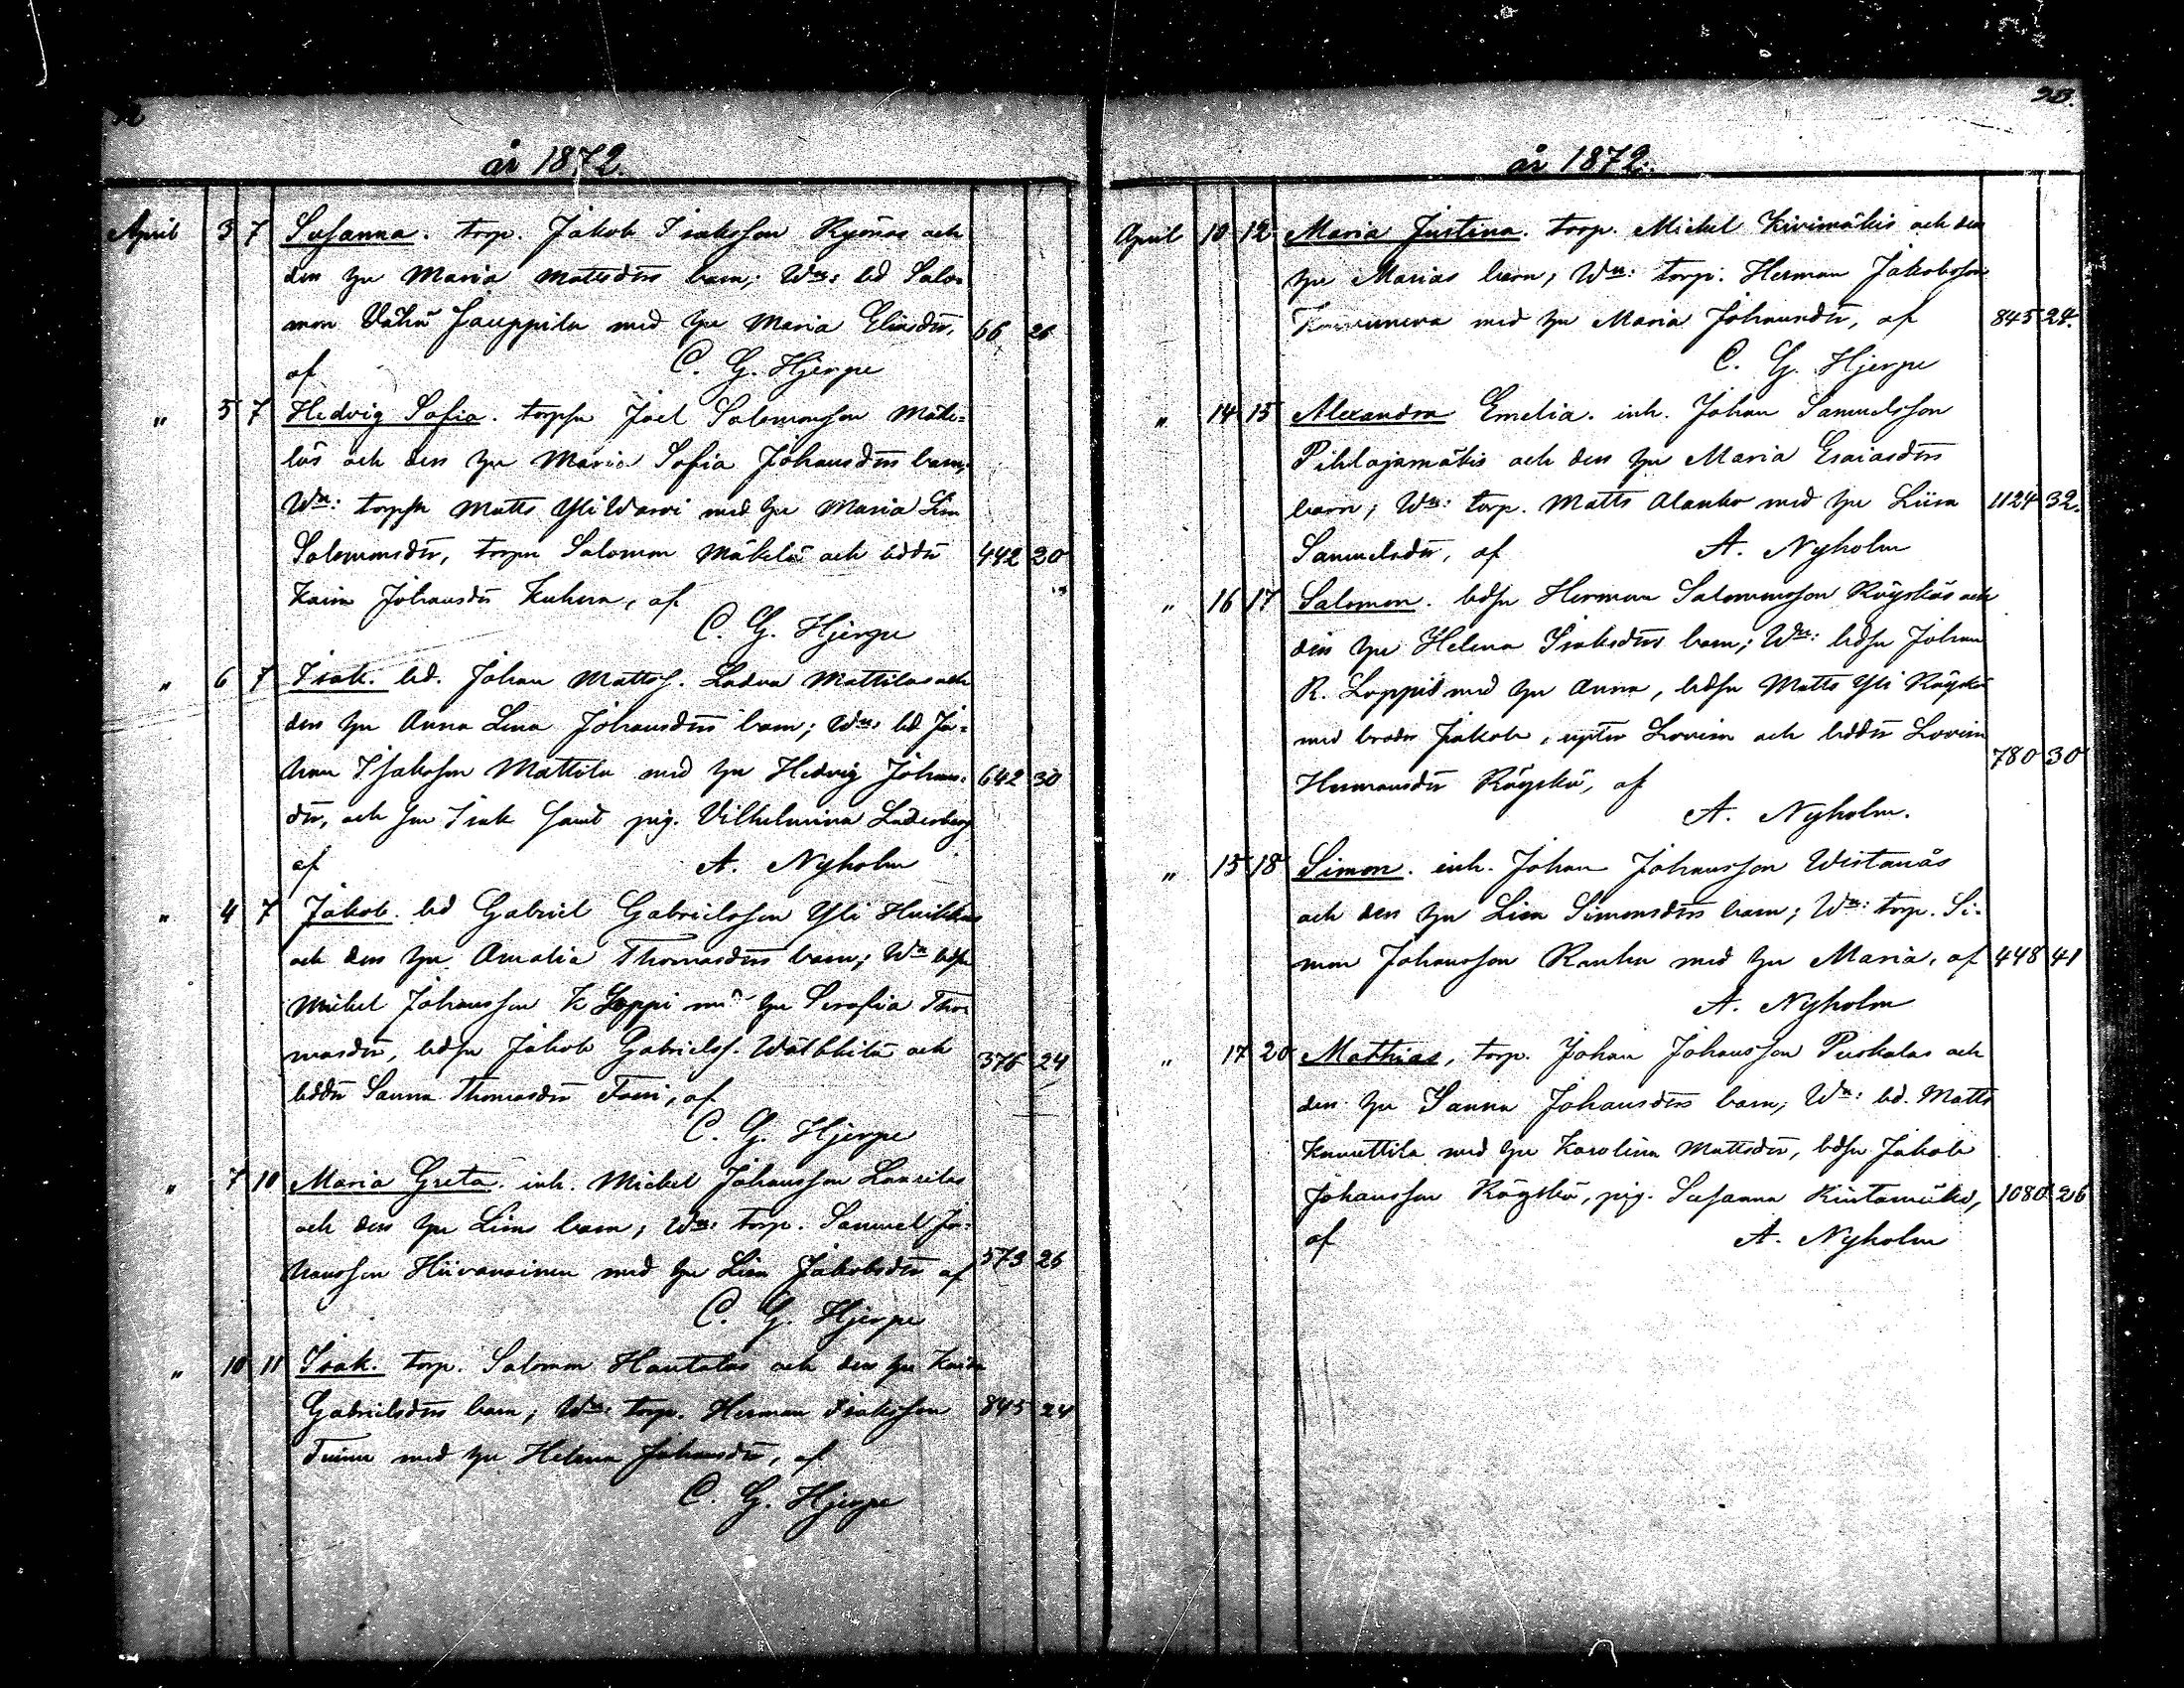 år 1872.
April 3 7 Susanna. torp. Jakob Isaksson Kyönäs och
den hu Maria Mattsdrs barn; Wn: bd Salo-
mon Vähä Jauppila med hu Maria Eliasdr, 66 26
af C. G. Hjerpe
" 5 7 Hedvig Sofia. torpsn Joel Salomonsson Mäke-
läs och des hu Maria Sofia Johansdrs barn;
Wn: torpsn Matts Yli Warvi med hu Maria Lisa
Salomonsdr, torpn Salomon Mäkelä och bddr 442 20
Kaisa Johansdr Kuhna, af
C. G. Hjerpe
" 6 7 Isak. bd. Johan Mattss. Ladva Mattilas och
des hu Anna Lena Johansdrs barn; Wn: bd Jo-
han Isaksson Mattila med hu Hedvig Johans- 642 30
dr, och sn Isak samt pig. Vilhelmina Söderberg
af A. Nyholm
" 4 7 Jakob. bd Gabriel Gabrielsson Yli Huikkus
och des hu Amalia Thomasdrs barn; Wn bdsn
Mickel Johansson K Loppi md hu Serafia Tho-
masdr, bdsn Jakob Gabrielss. Wälkkilä och 376 24
bddr Sanna Thomasdr Foin, af
C. G. Hjerpe
" 7 10 Maria Greta. inh. Mickel Johansson Laurilas
och des hu Lisas barn; Wn: torp. Samuel Jo-
hansson Hiivanainen med hu Lisa Jakobsdr af 573 26
C. G. Hjerpe
" 10 11 Isak. torp. Salomon Hautalas och des hu Kaisa
Gabrielsdrs barn; Wn: torp. Herman Isaksson 845 24
med hu Helena Johansdr, af
C. G. Hjerpe
år 1872.
April 10 12 Maria Justina. torp. Mickel Kivimäkis och des
hu Marias barn; Wn: torp. Herman Jakobsson
med hu Maria Johansdr, af 845 24.
C. G. Hjerpe
" 14 15 Alexandra Emelia. inh. Johan Samuelsson
Pihlajamäkis och des hu Maria Esaiasdrs
barn; Wn: torp. Matts Alanko med hu Liisa 1124 32.
Samuelsdr, af A. Nyholm
" 16 17 Salomon. bdsn Herman Salomonsson Räyskäs och
des hu Helena Isaksdrs barn; Wn: bdsn Johan
R. Loppi med hu Anna, bdsn Matts Yli Räyskä
med broder Jakob, systr Lovisa och bddr Lovisa
780 30
Hermansdr Räyskä, af
A. Nyholm.
" 15 18 Simon. inh. Johan Johansson Wistanäs
och des hu Lisa Simonsdrs barn; Wn: torp. Si-
mon Johansson Rauha med hu Maria, af 448 41
A. Nyholm
" 17 20 Mathias, torp. Johan Johansson Puskalas och
des hu Sanna Johansdrs barn; Wn: bd. Matts
Knuuttila med hu Karolina Mattsdr, bdsn Jakob
Johansson Räyskä, pig. Susanna Rintamäki, 1080 26
af A. Nyholm